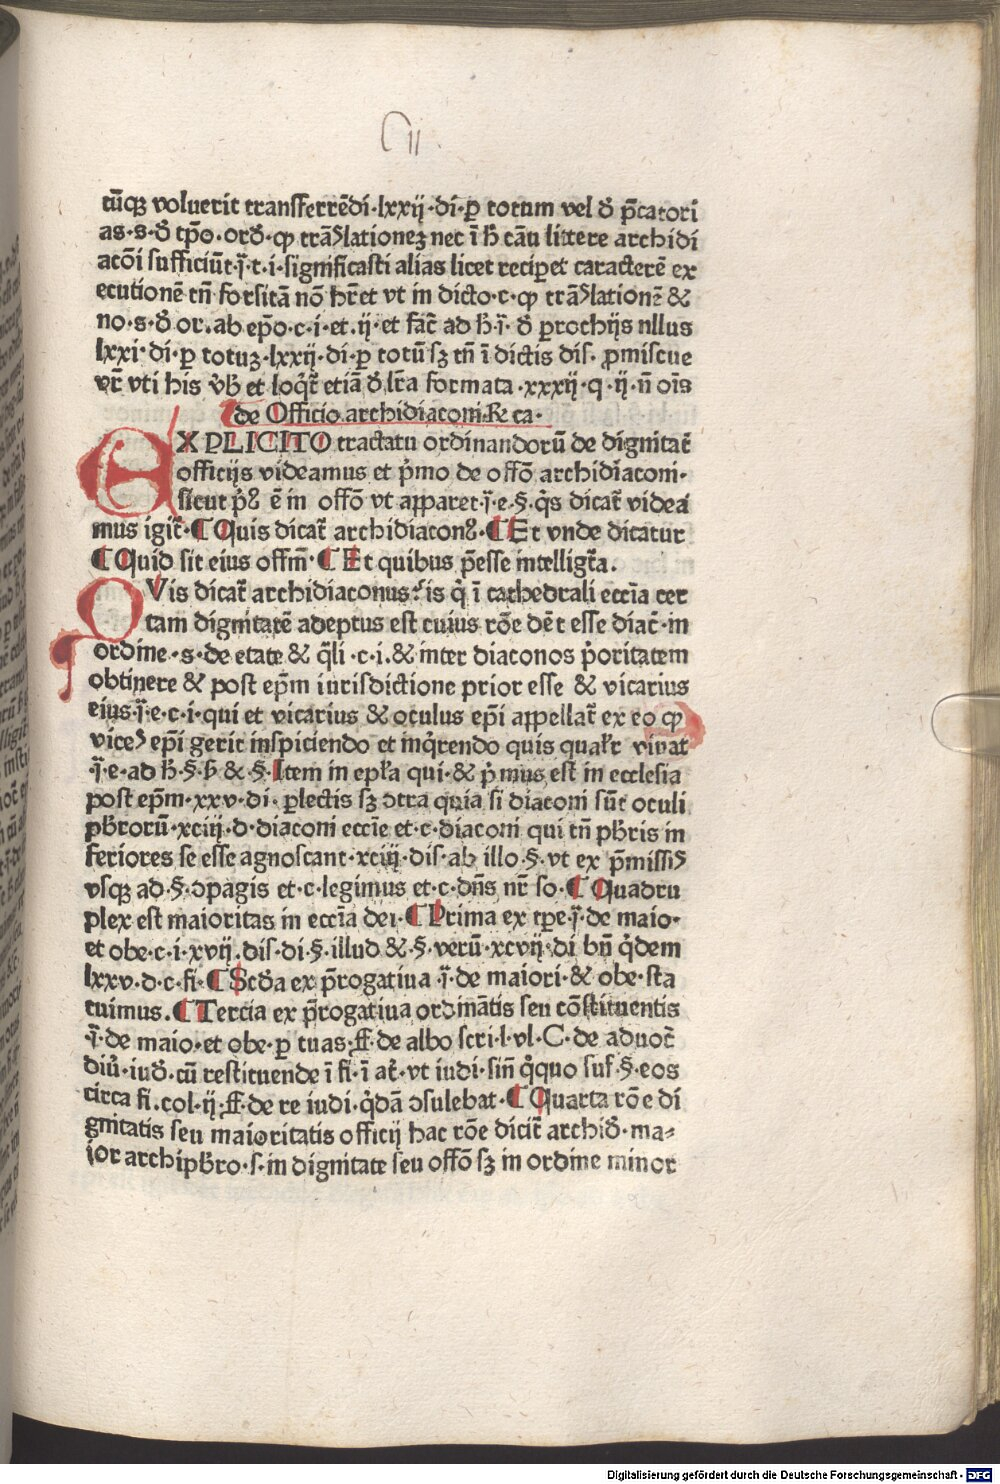 Cii
tūqꝫ voluerit transferrēdi·lxxij·di·ꝑ totum vel đ p̄catori
as·s·đ tp̄o·orđ·ꝙ trāſlationeꝫ nec ī ħ cāu littere archidi
acōi sufficiūt·j̄·t·i·significasti alias licet recipet caracterē ex
ecutionē tn̄ forsitā nō hr̄et vt in dicto·c·ꝙ trāſlationē &
no·s·đ or.ab ep̄o·c·i·et.ij·et fac̄ ad ħ·j̄·đ ꝑrochijs nllus
lxxi·di·ꝑ totuꝫ·lxxij·di·ꝑ totū sꝫ tn̄ ī dictis dis· ꝓmiscue
vr̄ vti his v̾b̾ et loq̄t̄ etiā đ lr̄a formata·xxxij·q·ij·n̄ oīs
de Officio archidiaconi.Rc ca·
EXPLICITO tractatu ordinandorū de dignitat̄
officijs videamus et p̄mo de offō archidiaconi·
sicut p̄ꝰ ē in offō vt apparet·j̄·e·§·q̄s dicat̄ videa
mus igit̄·¶ Quis dicat̄ archidiaconꝰ·¶ Et vnde dicatur
¶ Quid sit eius offm̄·¶ Et quibus p̄esse intelligt̄a.
QVis dicat̄ archidiaconus? is q̄ ī cathedrali ecc̄ia cer
tam dignitatē adeptus est cuius rōe dēt esse diac̄·in
ordine·s·de etate & q̄li·c·i.& inter diaconos p̄oritatem
obtinere & post ep̄m iurisdictione prior esse & vicarius
eius·j̄·e·c·i·qui et vicarius & oculus ep̄i appellat̄ ex eo ꝙ
viceſ ep̄i gerit inspiciendo et inq̄rendo quis qualr̄ vivat
·j̄·e·ad ħ·§·ħ & §·Item in epl̄a qui·& p̄mus est in ecclesia
post ep̄m·xxv·di·ꝑlectis sꝫ ↄtra quia si diaconi sūt oculi
pb̄rorū·xciij·d·diaconi ecc̄ie et·c·diaconi qui tn̄ pb̄ris in
feriores se esse agnoscant·xciij·dis·ab illo·§·vt ex p̄missiſ
vsqꝫ ad·§·ↄpagis et·c·legimus et·c·dn̄s nr̄ so·¶ Quadru
plex est maioritas in ecc̄ia dei·¶ Prima ex tp̄e·j̄·de maio·
et obe·c·i·xvij·dis·di·§·illud &·§·verū·xcvij·di bn̄ q̄dem
lxxv·d·c·fi·¶ Scđa ex p̄rogatiua·j̄·de maiori·& obe·sta
tuimus.¶ Tercia ex p̄rogatiua ordināntis seu cōstituentis
·j̄·de maio·et obe·ꝑ tuas·ff·de albo scri·l·vl·C·de aduoc̄
diu̾·iuđ·cū restituende ī fi·ī at̄·vt iudi·sin̄ q̄quo suf·§·eos
circa fi.col·ij·ff·de re iudi·q̄dā ↄsulebat·¶ Quarta rōe di
gnitatis seu maioritatis officij hac rōe dicit̄ archiđ·ma⸗
ior archipb̄ro·s·in dignitate seu offō sꝫ in ordine minor
Digitalisierung gefördert durch die Deutsche Forschungsgemeinschaft - DFG